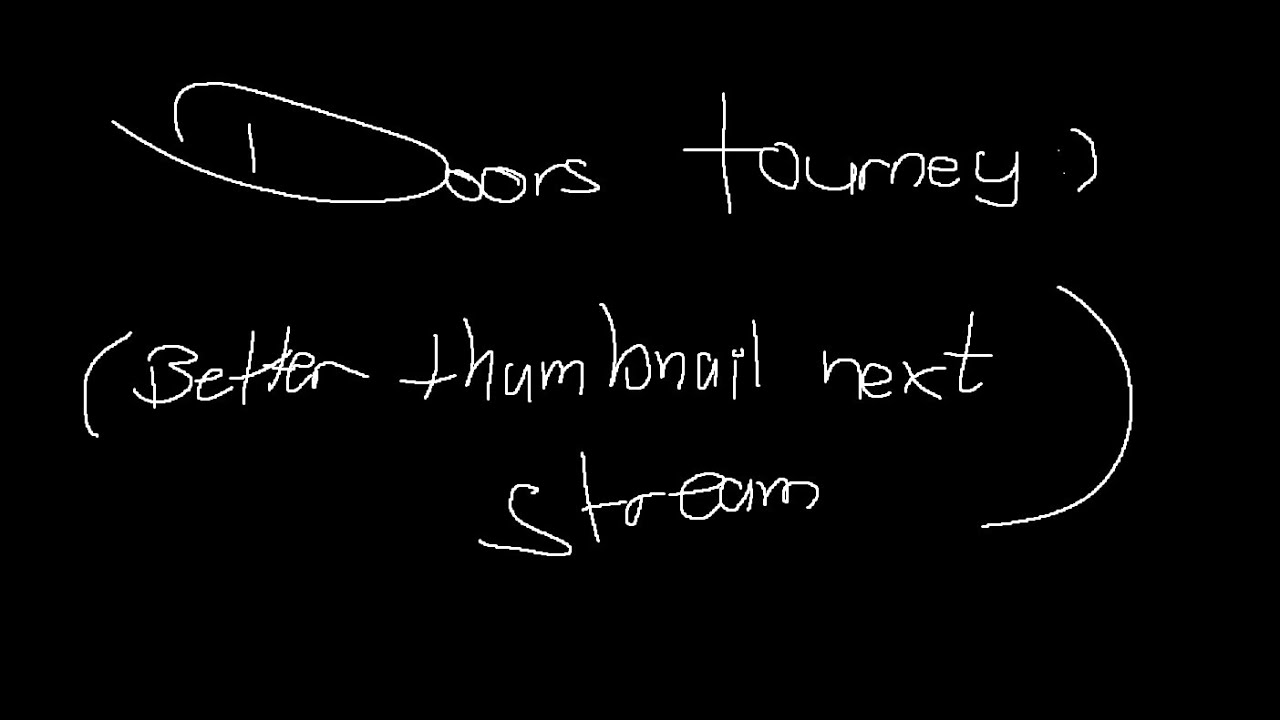 Doors tourney :)
(Better thumbnail next
stream)